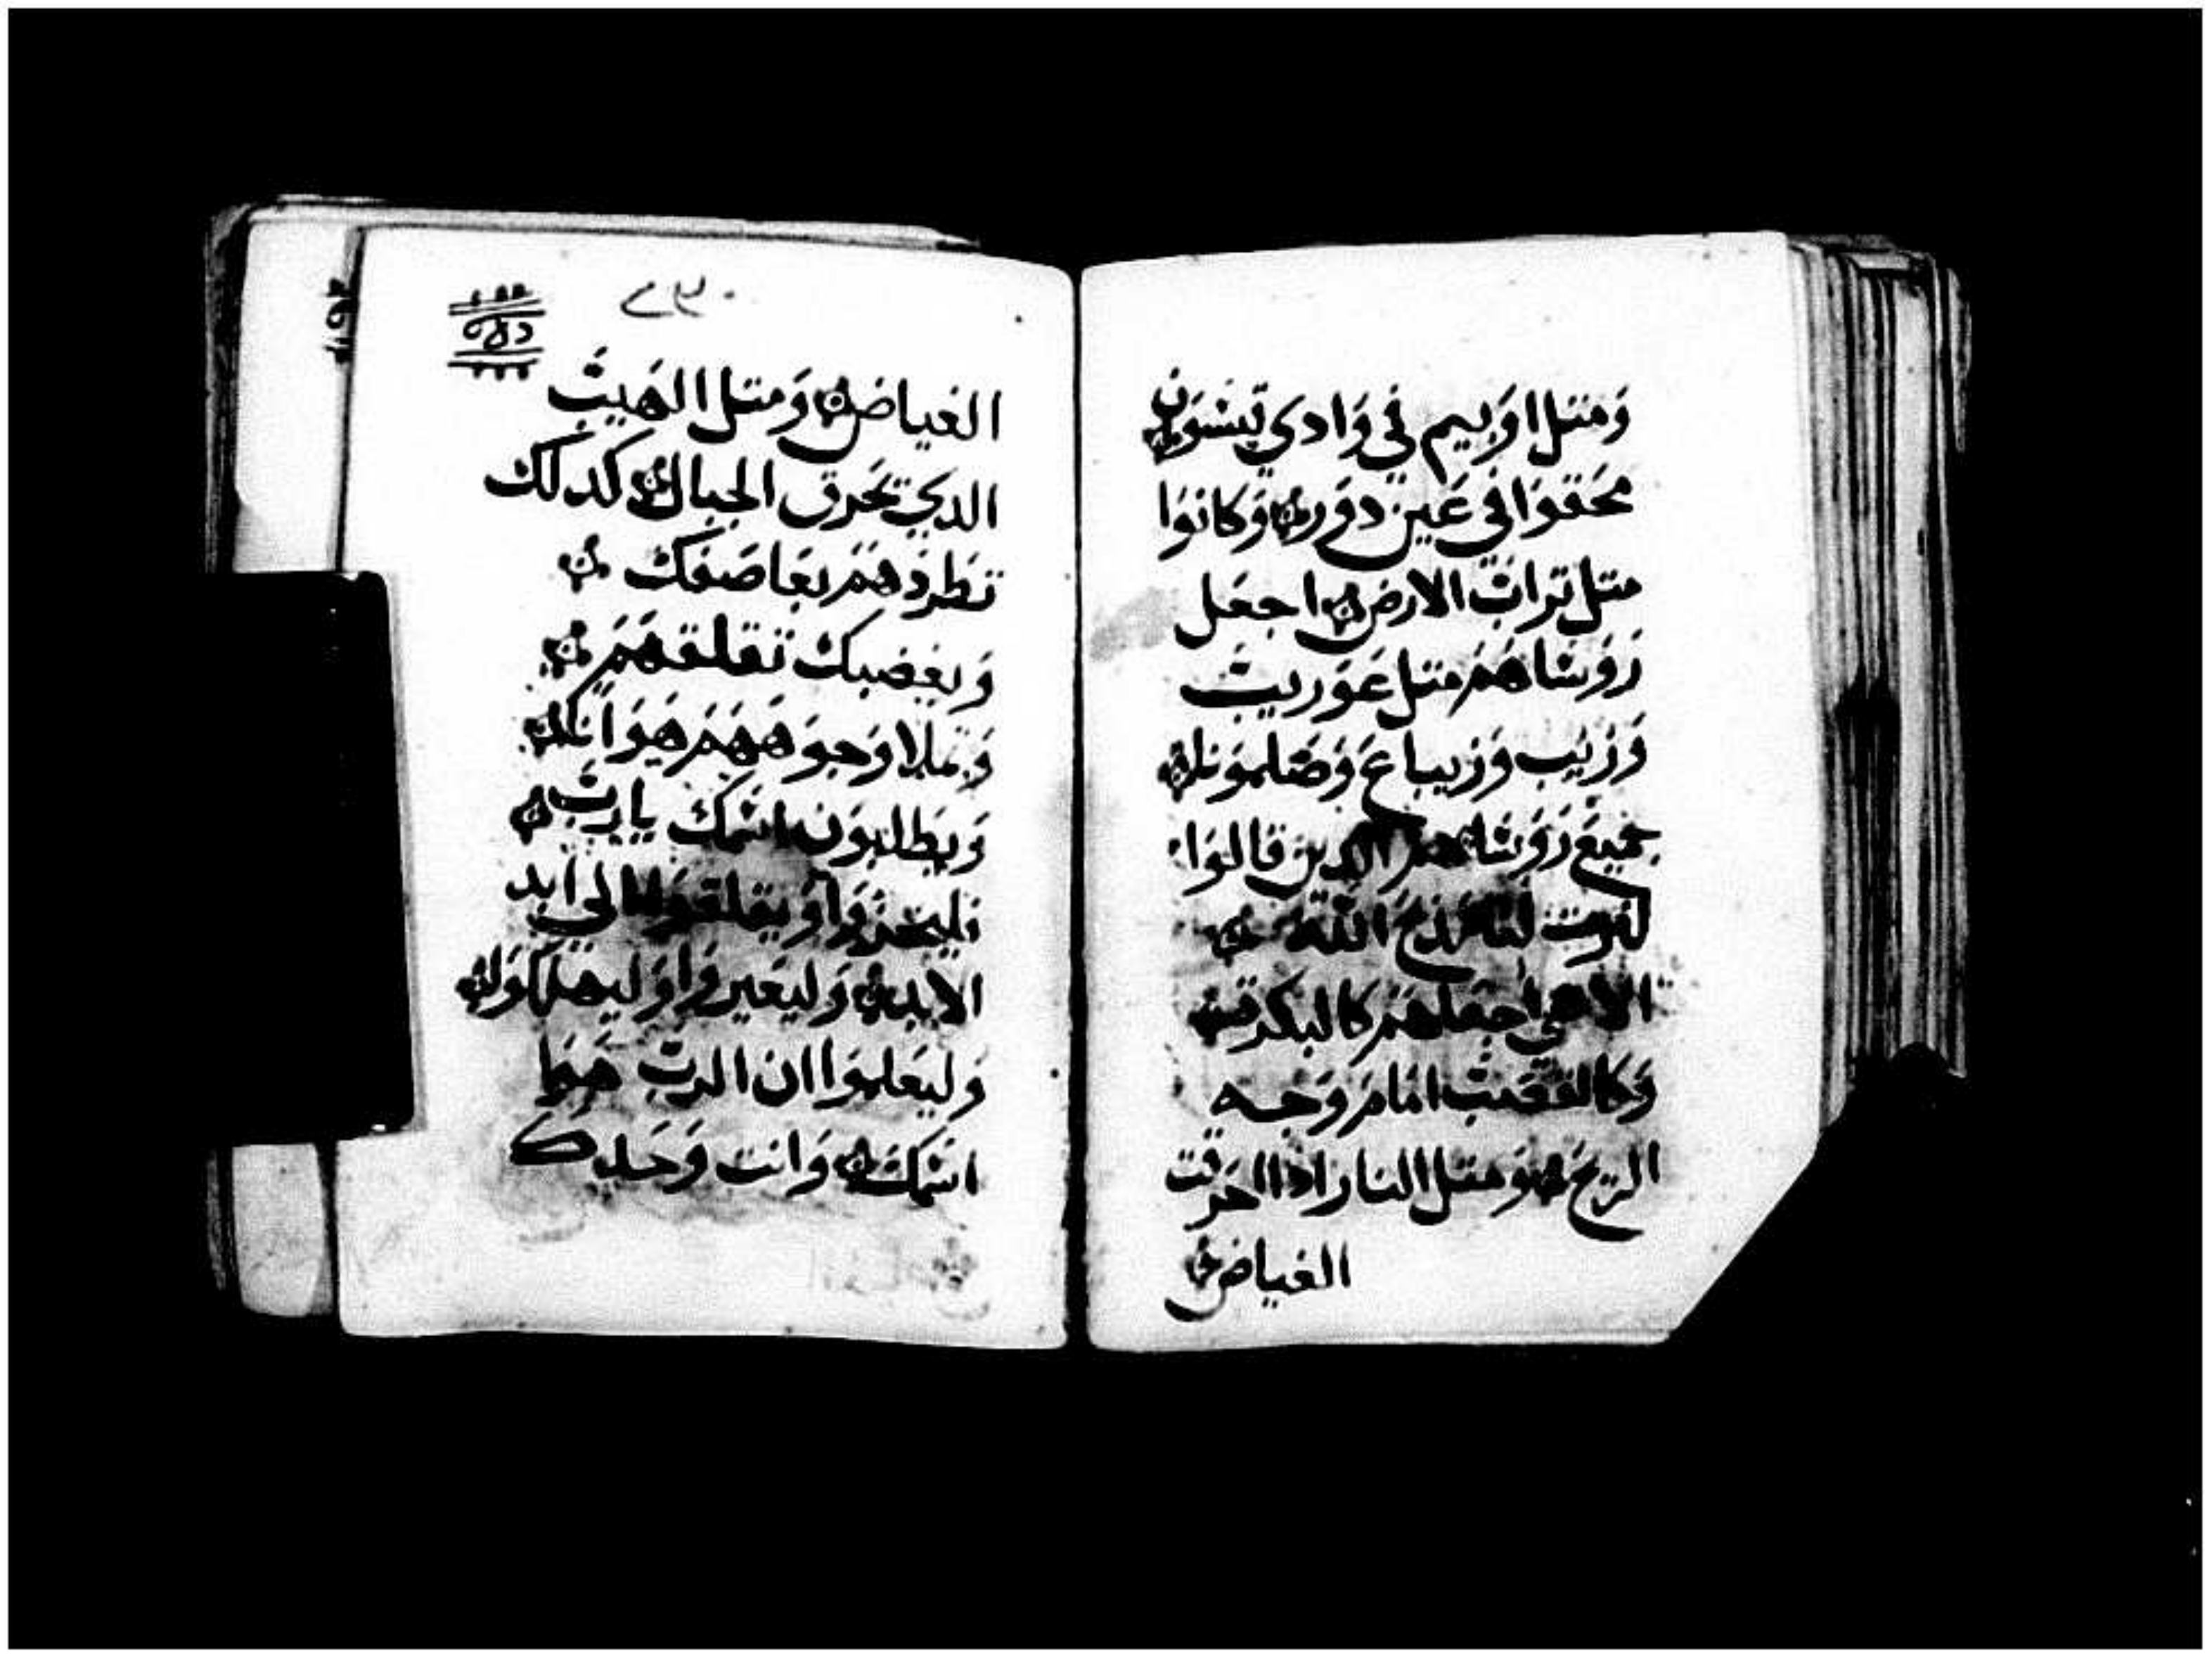 وَمتل اوَبيم في وَادي تيسَوَن
محَقوَا في عَين دوَر وَكانوَا
متل ترابَ الارض اجعَل
رَوَساهَم متل عَوَريبَ
وَزيَب وَزيباعَ وَصَلموَنا
جميعَ رَوَساهم الدين قالوَا
لنرت لنا مَذبح اللَه
الاهي اجعَلهَم كالبكرة
وَكالقصَبَ امامَ وَجه
الريحَ وَمتل النار ادا احرَقت
الغياض
٢٣٠
الغياض وَمتل الهَيبَ
الدي تحَرق الجبال كدلك
تطردهَم بعَاصَفك
وَبغضبك تقلقهَم
وَتملا وَجوَههَم هَوَانا
وَيطلبوَن اسَمك يارَبَ
فليخزَوَا وَيقلقوَا الى ابد
الابد وَليعَيروَا وَليهلكوَا
وَليعَلموَا ان الربَ هَوَ
اسَمك وَانت وَحَدك